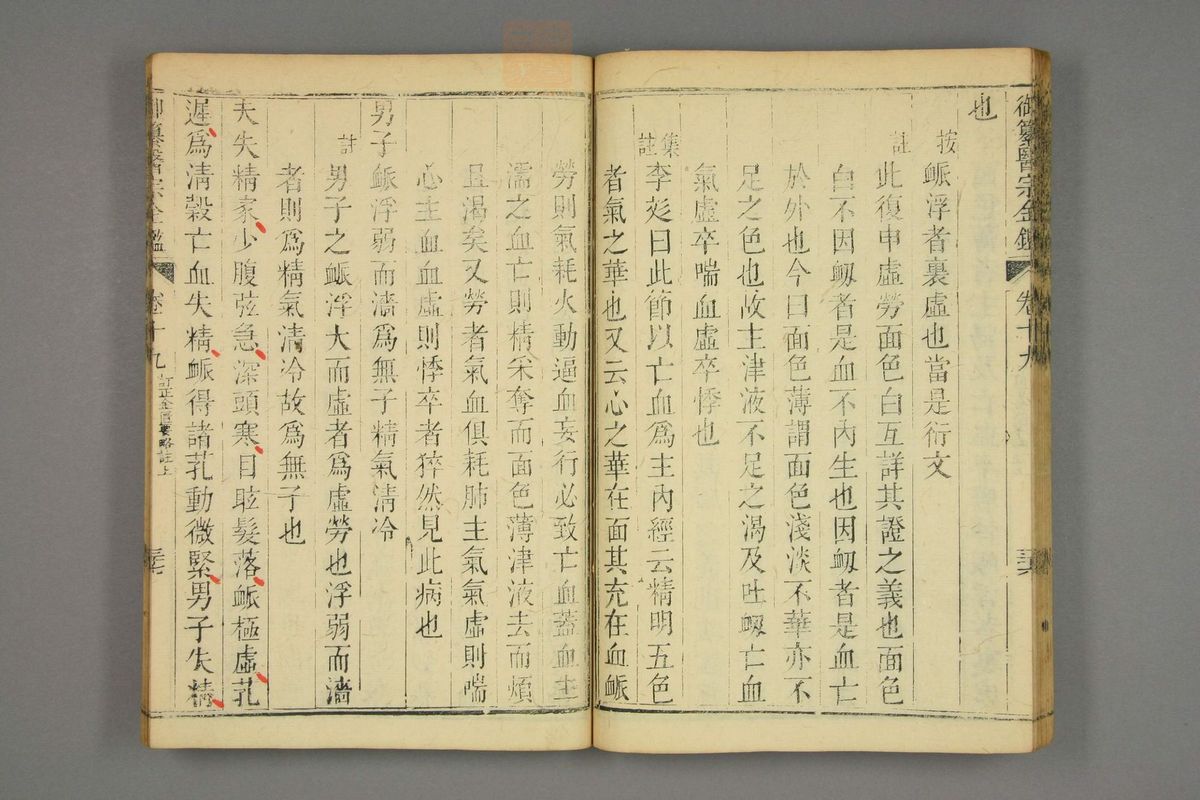 御纂醫宗金鑑 卷十九
也
按 脈浮者裏虛也當是衍文
註 此復申虛勞面色白互詳其證之義也面色
白不因衂者是血不內生也因衂者是血亡
於外也今曰面色薄謂面色淺淡不華亦不
足之色也故主津液不足之渴及吐衂亡血
氣虛卒喘血虛卒悸也
集註 李彣曰此節以亡血爲主內經云精明五色
者氣之華也又云心之華在面其充在血脈
勞則氣耗火動逼血妄行必致亡血蓋血主
濡之血亡則精采奪而面色薄津液去而煩
且渴矣又勞者氣血俱耗肺主氣氣虛則喘
心主血血虛則悸卒者猝然見此病也
男子脈浮弱而濇爲無子精氣淸冷
註 男子之脈浮大而虛者爲虛勞也浮弱而濇
者則爲精氣清冷故爲無子也
夫失精家少腹弦急深頭寒目眩髮落脈極虛芤
遲爲淸穀亡血失精脈得諸芤動微緊男子失精
御纂醫宗金鑑 卷十九 訂正金匱要略註上